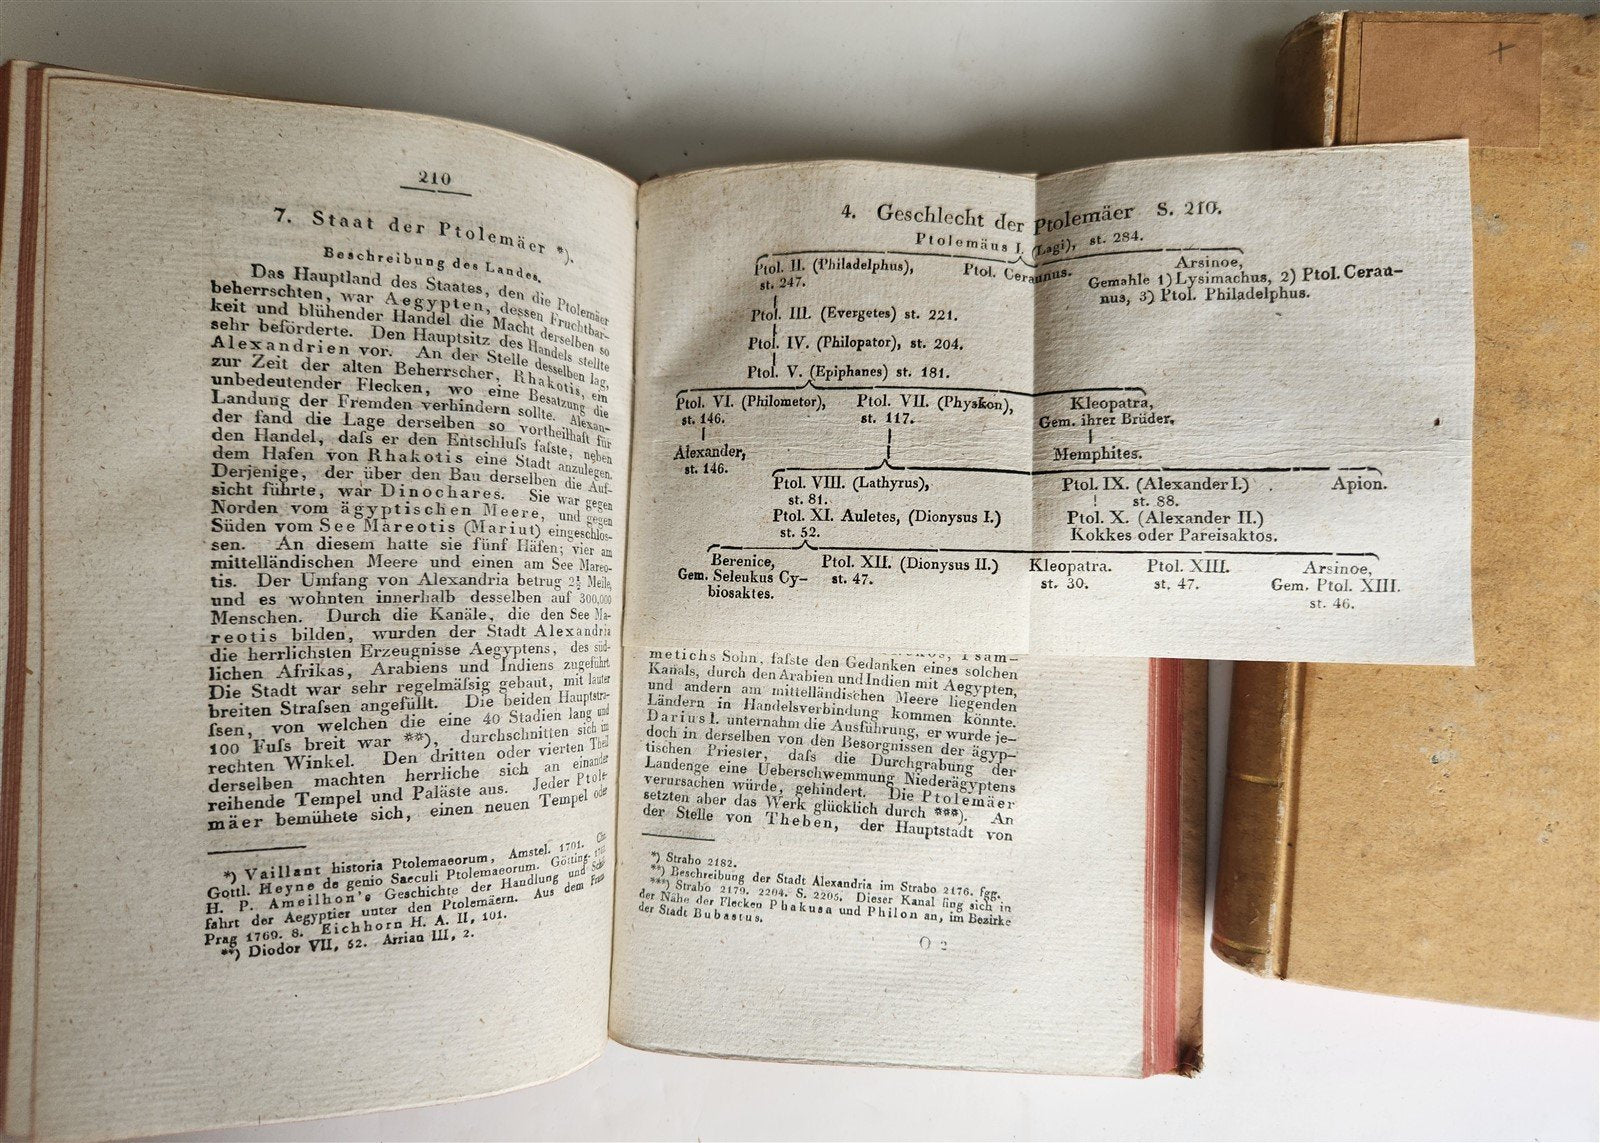 210
7. Staat der Ptolemäer *).
Beschreibung des Landes.
Das Hauptland des Staates, den die Ptolemäer
beherrschten, war Aegypten, dessen Fruchtbar-
keit und blühender Handel die Macht derselben so
sehr beförderte. Den Hauptsitz des Handels stellte
Alexandrien vor. An der Stelle desselben lag,
zur Zeit der alten Beherrscher, Rhakotis, ein
unbedeutender Flecken, wo eine Besatzung die
Landung der Fremden verhindern sollte. Alexan-
der fand die Lage derselben so vortheilhaft für
den Handel, daſs er den Entschluſs faſste, neben
dem Hafen von Rhakotis eine Stadt anzulegen.
Derjenige, der über den Bau derselben die Auf-
sicht führte, war Dinochares. Sie war gegen
Norden vom ägyptischen Meere, und gegen
Süden vom See Mareotis (Mariut) eingeschlos-
sen. An diesem hatte sie fünf Häfen; vier am
mittelländischen Meere und einen am See Mareo-
tis. Der Umfang von Alexandria betrug 2½ Meile,
und es wohnten innerhalb desselben auf 300,000
Menschen. Durch die Kanäle, die den See Ma-
reotis bilden, wurden der Stadt Alexandria
die herrlichsten Erzeugnisse Aegyptens, des süd-
lichen Afrikas, Arabiens und Indiens zugeführt
Die Stadt war sehr regelmäſsig gebaut, mit lauter
breiten Straſsen angefüllt. Die beiden Hauptstra-
ſsen, von welchen die eine 40 Stadien lang und
100 Fuſs breit war **), durchschnitten sich im
rechten Winkel. Den dritten oder vierten Theil
derselben machten herrliche sich an einander
reihende Tempel und Paläste aus. Jeder Ptole-
mäer bemühete sich, einen neuen Tempel oder
*) Vaillant historia Ptolemaeorum, Amstel. 1701. Ch.
Gottl. Heyne de genio Saeculi Ptolemaeorum. Götting.
H. P. Ameilhon's Geschichte der Handlung und Schif-
fahrt der Aegyptier unter den Ptolemäern. Aus dem Franz
Prag 1769. 8. Eichhorn H. A. II, 101.
**) Diodor VII, 52. Arrian III, 2.
4. Geschlecht der Ptolemäer S. 210.
Ptolemäus I. (Lagi), st. 284.
Ptol. II. (Philadelphus), Ptol. Ceraunus. Arsinoe,
st. 247. Gemahle 1) Lysimachus, 2) Ptol. Cerau-
nus, 3) Ptol. Philadelphus.
Ptol. III. (Evergetes) st. 221.
Ptol. IV. (Philopator), st. 204.
Ptol. V. (Epiphanes) st. 181.
Ptol. VI. (Philometor), Ptol. VII. (Physkon), Kleopatra,
st. 146. st. 117. Gem. ihrer Brüder.
Alexander, Memphites.
st. 146.
Ptol. VIII. (Lathyrus), Ptol. IX. (Alexander I.) Apion.
st. 81. st. 88.
Ptol. XI. Auletes, (Dionysus I.) Ptol. X. (Alexander II.)
st. 52. Kokkes oder Pareisaktos.
Berenice, Ptol. XII. (Dionysus II.) Kleopatra. Ptol. XIII. Arsinoe,
Gem. Seleukus Cy- st. 47. st. 30. st. 47. Gem. Ptol. XIII.
biosaktes. st. 46.
metichs Sohn, faſste den Gedanken eines solchen
Kanals, durch den Arabien und Indien mit Aegypten,
und andern am mittelländischen Meere liegenden
Ländern in Handelsverbindung kommen könnte.
Darius I. unternahm die Ausführung, er wurde je-
doch in derselben von den Besorgnissen der ägyp-
tischen Priester, daſs die Durchgrabung der
Landenge eine Ueberschwemmung Niederägyptens
verursachen würde, gehindert. Die Ptolemäer
setzten aber das Werk glücklich durch ***). An
der Stelle von Theben, der Hauptstadt von
*) Strabo 2182.
**) Beschreibung der Stadt Alexandria im Strabo 2176. fgg.
***) Strabo 2179. 2204. S. 2205. Dieser Kanal fing sich in
der Nähe der Flecken Phakusa und Philon an, im Bezirke
der Stadt Bubastus.
O 2